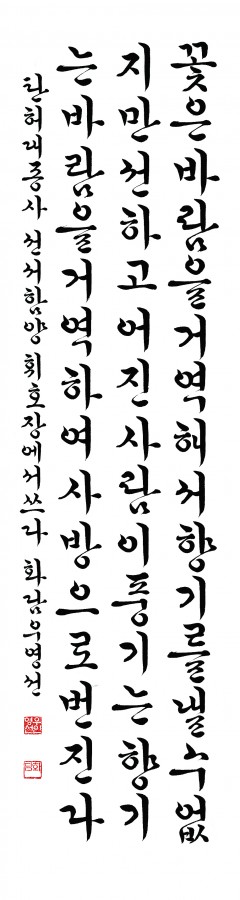 꽃은바람을거역해서향기를낼수없
지만선하고어진사람이풍기는향기
는바람을거역하여사방으로번진다
탄허대종사 선서함양 휘호장에서쓰다 화람우영선